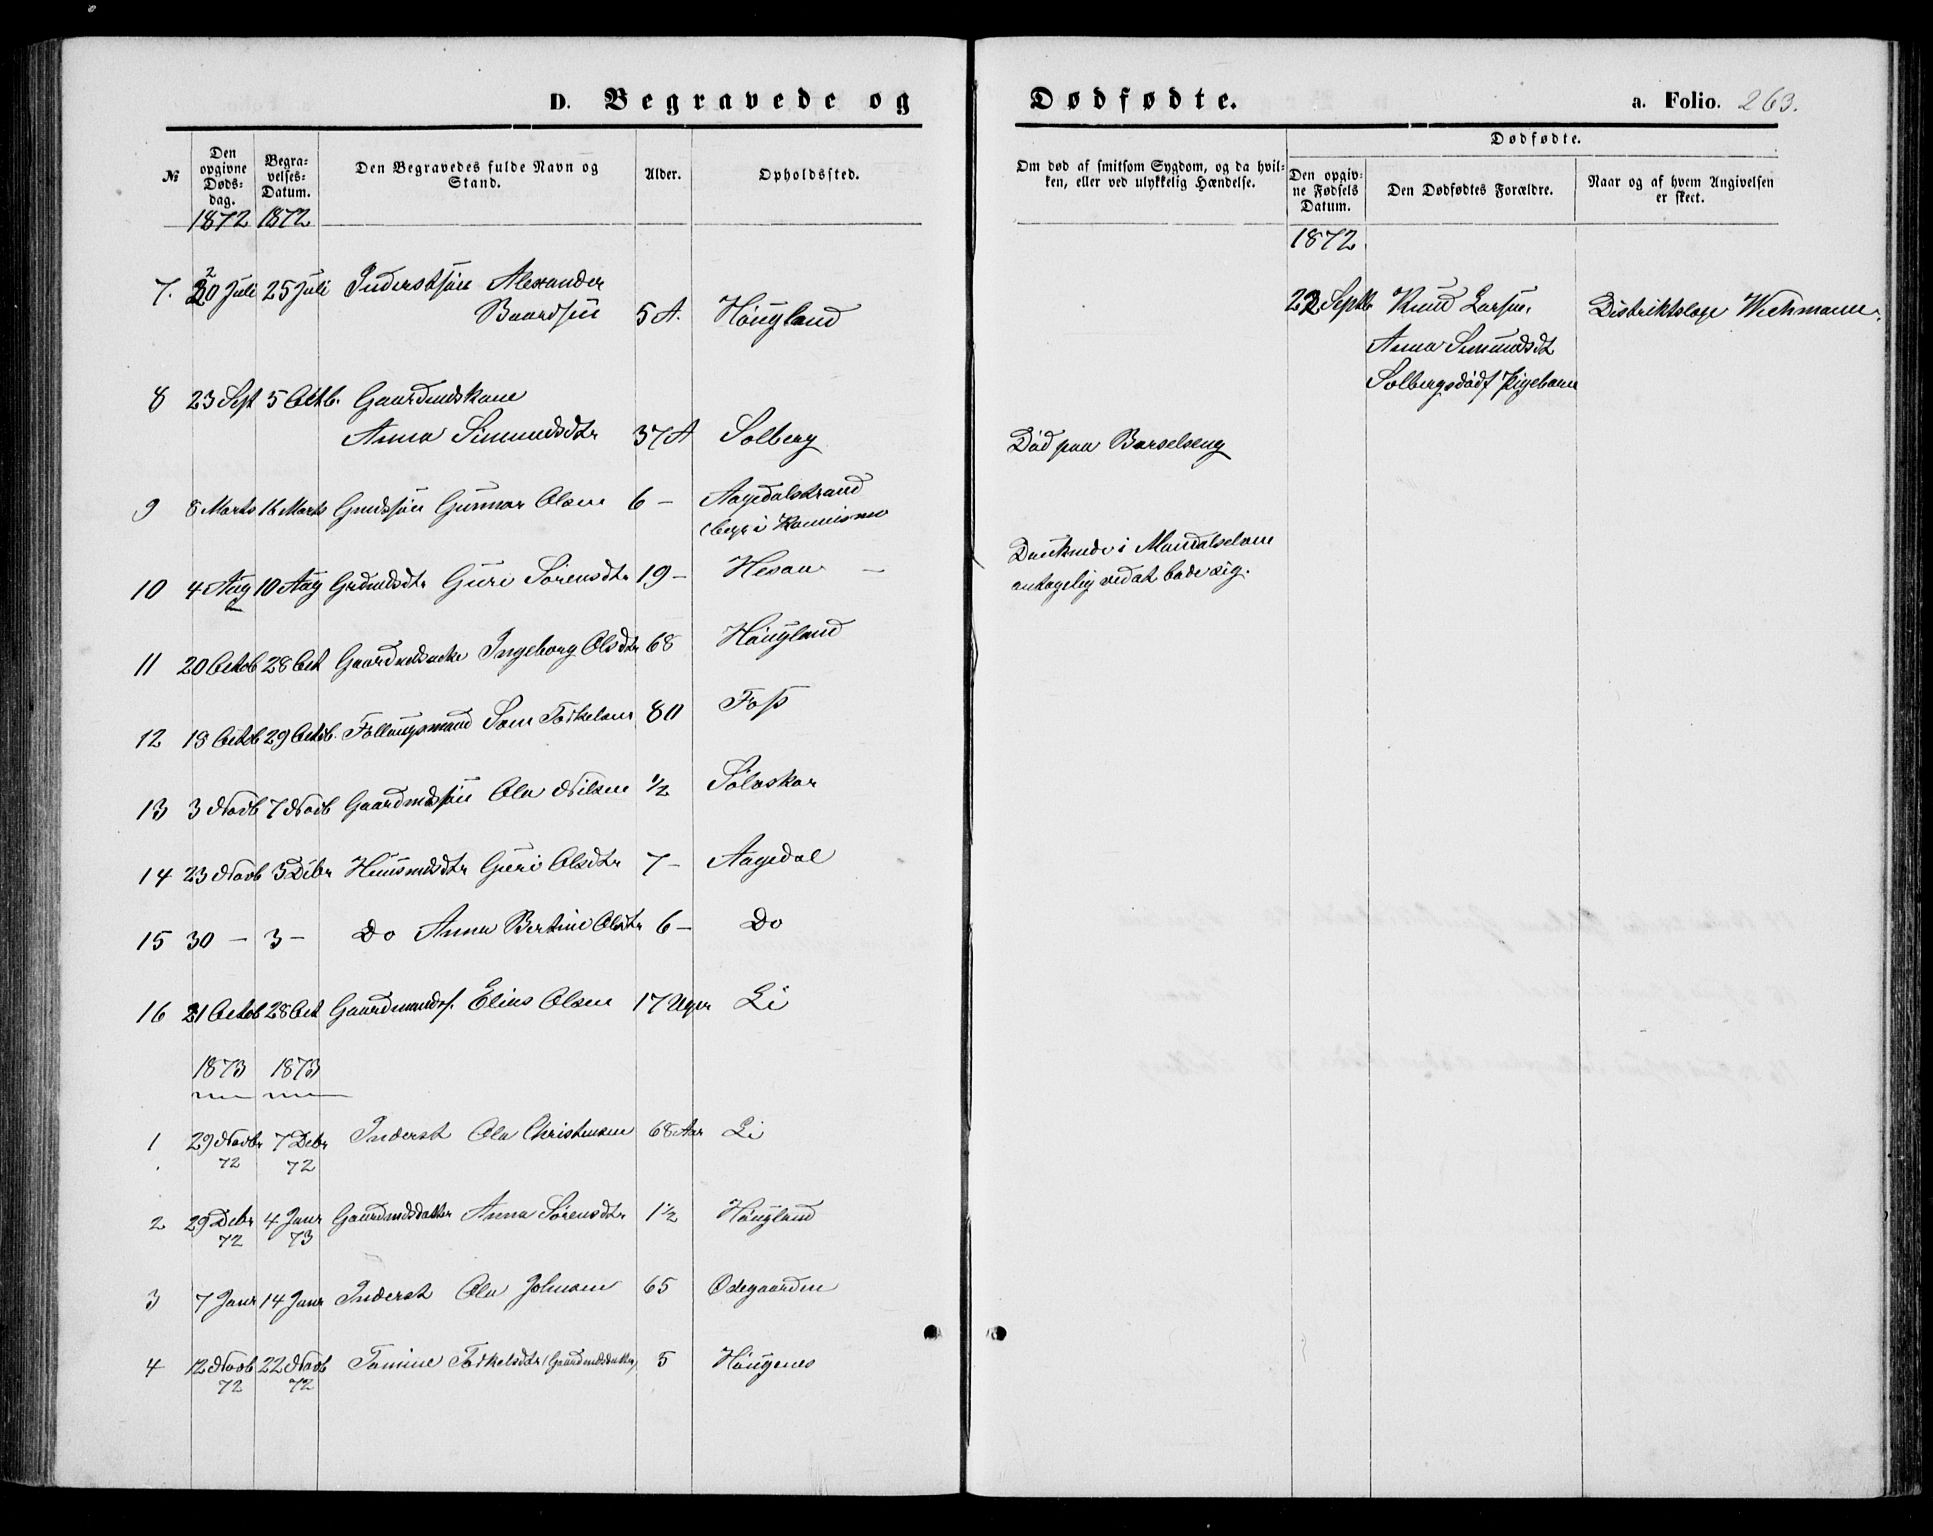 D. Begravede og Dødfødte. a. Folio. 263.
№ Den opgivne Døds-dag. Begra-velses-Datum. Den Begravedes fulde Navn og Stand. Alder. Opholdssted.
Om død af smitsom Sygdom, og da hvil-ken, eller ved ulykkelig Hændelse. Dødfødte. Den opgiv-ne Fødsels Datum. Den Dødfødtes Forældre. Naar og af hvem Angivelsen er skeet.
1872 1872
1872.
7. 20 Juli 25 Juli Inderstsøn Alexander
Baardsen 5 A. Höugland
22 Septb Knud Larsen, Distriktslæge Wichmann.
Anna Simundsdt
Solberg dødf Pigebarn
8 23 Sept 5 Octb. Gaardmdskone
Anna Simundsdtr 37 A Solberg Död paa Barselseng
9 8 Marts 16 Marts Grmdssön Gunnar Olsen 6 – Aagedalstrand
10 4 Aug 10 Aug Grdmdsdtr Guri Sörensdtr 19 – Hesaa – Druknede i Mandalselven
antagelig ved at bade sig.
11 20 Octob 28 Oct Gaardmdsenke Ingeborg Olsdtr 68 Höugland
12 18 Octob 29 Octob. Föllaugsmand Torkelsen 80 Foss
13 3 Novb 7 Novb Gaardmdssön Ola Nilsen ½ Sölvskar
14 23 Novb 3 Debr Huusmdsdtr Guri Olsdtr 7 – Aagedal
15 30 – 3 – Do Anna Bertine Olsdtr 6 – Do
16 21 Octob 28 Oct Gaardmands. Elias Olsen 17 Uger Li
1873 1873
1 29 Novbr 72 7 Debr 72 Inderst Ola Christensen 68 Aar Li
2 29 Debr 72 4 Janr 73 Gaardmdsdatter Anna Sörensdtr 1½ Höugland
3 7 Janr 14 Janr Inderst Ola Johnsen 65 Ödegaarden
4 12 Novb 72 22 Novb 72 Tomine Torkelsdtr (Gaardmdsdatter) 5 Höugenes